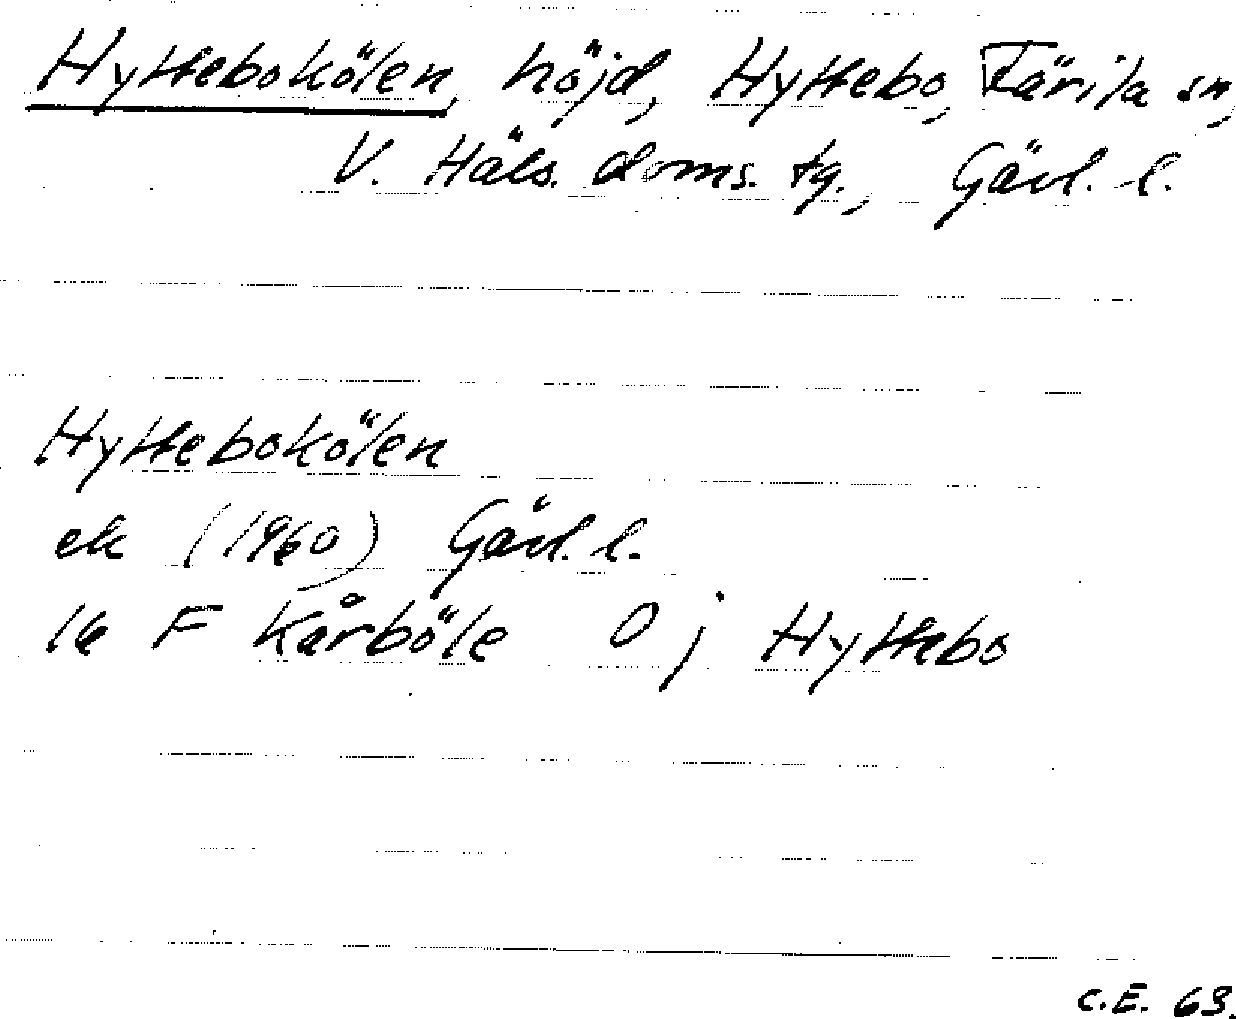 Hyttebokölen, höjd, Hyttebo, Färila sn,
V. Häls. doms. tg., Gävl. l.
Hyttebokölen
ek (1960) Gävl. l.
16 F Kårböle O j Hyttebo
C.E. 63.